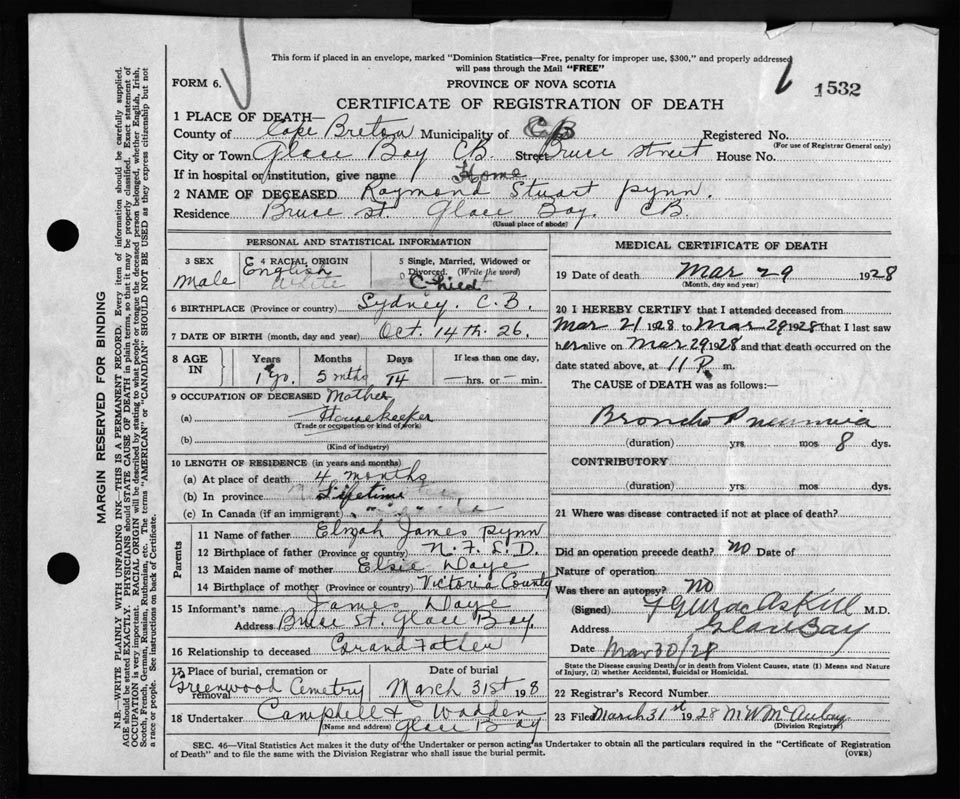 This form if placed in an envelope, marked "Dominion Statistics—Free, penalty for improper use, $300," and properly addressed
will pass through the Mail "FREE"
FORM 6.
PROVINCE OF NOVA SCOTIA
1532
CERTIFICATE OF REGISTRATION OF DEATH
1 PLACE OF DEATH—
County of Cape Breton Municipality of CB Registered No.
(For use of Registrar General only)
City or Town Glace Bay CB. Street Bruce street House No.
If in hospital or institution, give name Home
2 NAME OF DECEASED Raymond Stuart Pynn.
Residence Bruce st. Glace Bay. CB.
(Usual place of abode)
PERSONAL AND STATISTICAL INFORMATION
3 SEX
Male
4 RACIAL ORIGIN
English
White
5 Single, Married, Widowed or
Divorced. (Write the word)
Child
6 BIRTHPLACE (Province or country) Sydney. C.B.
7 DATE OF BIRTH (month, day and year) Oct. 14th. 26.
8 AGE IN
Years Months Days If less than one day,
1 yo. 5 mths 14 — hrs. or — min.
9 OCCUPATION OF DECEASED Mother
(a) Housekeeper
(Trade or occupation or kind of work)
(b)
(Kind of industry)
10 LENGTH OF RESIDENCE (in years and months)
(a) At place of death 4 months
(b) In province Lifetime
(c) In Canada (if an immigrant) " "
Parents
11 Name of father Elijah James Pynn
12 Birthplace of father (Province or country) N.F.L.D.
13 Maiden name of mother Elsie Daye
14 Birthplace of mother (Province or country) Victoria County
15 Informant's name James Daye
Address Bruce St. Glace Bay
16 Relationship to deceased Grand Father
17 Place of burial, cremation or removal Date of burial
Greenwood Cemetry March 31st 1928
18 Undertaker Campbell & Wadden
(Name and address) Glace Bay
MEDICAL CERTIFICATE OF DEATH
19 Date of death Mar 29 1928
(Month, day and year)
20 I HEREBY CERTIFY that I attended deceased from
Mar 21 1928 to Mar 29 1928 that I last saw
her alive on Mar 29 1928 and that death occurred on the
date stated above, at 11 P. m.
The CAUSE of DEATH was as follows:—
Broncho Pneumonia
(duration) yrs. mos. 8 dys.
CONTRIBUTORY
(duration) yrs. mos. dys.
21 Where was disease contracted if not at place of death?
Did an operation precede death? No Date of
Nature of operation
Was there an autopsy? No
(Signed) MacAskill M.D.
Address Glace Bay
Date Mar 30/28
State the Disease causing Death, or in death from Violent Causes, state (1) Means and Nature
of Injury, (2) whether Accidental, Suicidal or Homicidal.
22 Registrar's Record Number
23 Filed March 31st 1928 M W McAulay
(Division Registrar)
SEC. 46—Vital Statistics Act makes it the duty of the Undertaker or person acting as Undertaker to obtain all the particulars required in the "Certificate of Registration
of Death" and to file the same with the Division Registrar who shall issue the burial permit.
(OVER)
MARGIN RESERVED FOR BINDING
N.B.—WRITE PLAINLY WITH UNFADING INK—THIS IS A PERMANENT RECORD. Every item of information should be carefully supplied.
AGE should be stated EXACTLY. PHYSICIANS should STATE CAUSE OF DEATH in plain terms, so that it may be properly classified. Exact statement of
OCCUPATION is very important. RACIAL ORIGIN will be described by stating to what people or tongue the deceased person belonged, whether English, Irish,
Scotch, French, German, Russian, Ruthenian, etc. The terms "AMERICAN" or "CANADIAN" SHOULD NOT BE USED as they express citizenship but not
a race or people. See instructions on back of Certificate.